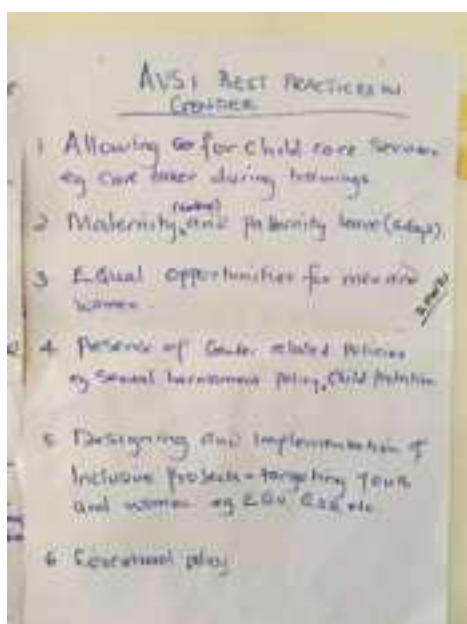 AVSI BEST PRACTICES IN
GENDER
1 Allowing for child care services
eg care taker during trainings
2 Maternity and paternity leave (days)
3 Equal opportunities for men and
women
4 Presence of Gender related Policies
eg Sexual harassment policy, Child Protection
5 Designing and Implementation of
Inclusive projects - targeting youth
and women eg etc
6 policy